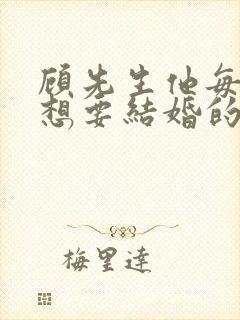 顾先生他每
想要結婚的
梅里達